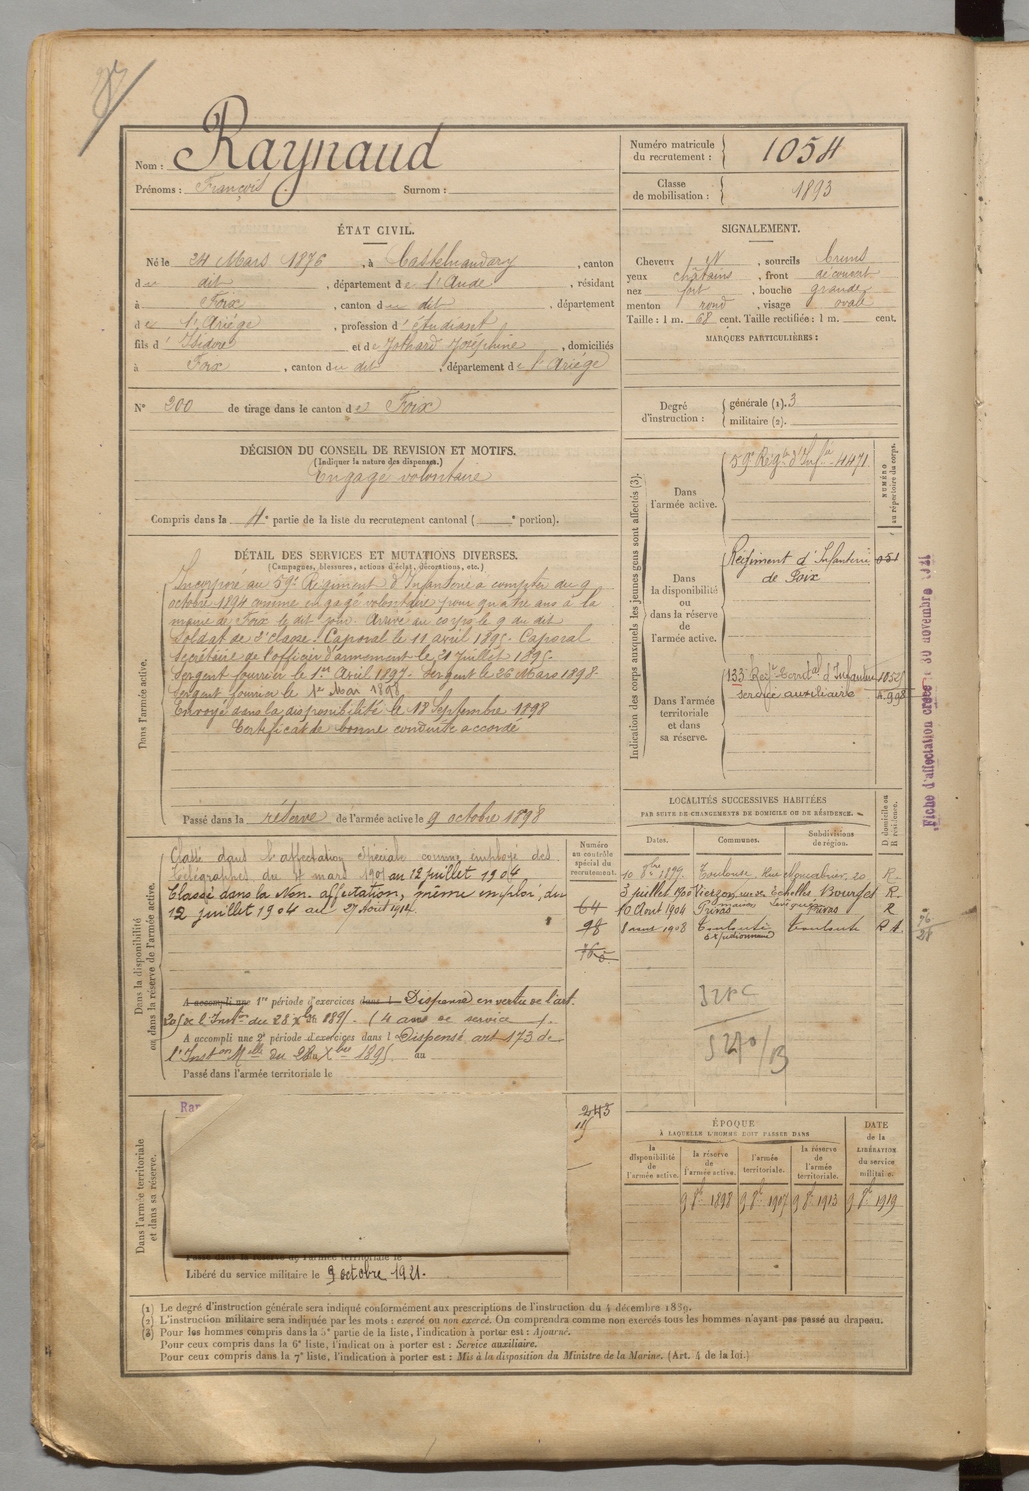 Nom : Raynaud
Prénoms : François Surnom :
Numéro matricule du recrutement : 1054
Classe de mobilisation : 1893
ÉTAT CIVIL.
Né le 24 Mars 1876, à Castelnaudary, canton
du dit, département de l'Aude, résidant
à Foix, canton du dit, département
de l'Ariège, profession d'étudiant
fils d'Isidore et de Jothard Joséphine, domiciliés
à Foix, canton du dit, département de l'Ariège
N° 200 de tirage dans le canton de Foix
SIGNALEMENT.
Cheveux N, sourcils bruns
yeux châtains, front découvert
nez fort, bouche grande
menton rond, visage ovale
Taille : 1 m. 68 cent. Taille rectifiée : 1 m. cent.
MARQUES PARTICULIÈRES :
Degré d'instruction : générale (1). 3
militaire (2).
DÉCISION DU CONSEIL DE REVISION ET MOTIFS.
(Indiquer la nature des dispenses.)
Engagé volontaire
Compris dans la 4e partie de la liste du recrutement cantonal ( e portion).
DÉTAIL DES SERVICES ET MUTATIONS DIVERSES.
(Campagnes, blessures, actions d'éclat, décorations, etc.)
Dans l'armée active.
Incorporé au 59e Régiment d'Infanterie à compter du 9
octobre 1894 comme engagé volontaire pour quatre ans à la
mairie de Foix le dit jour. Arrivé au corps le 9 au dit
Soldat de 2e classe. Caporal le 11 avril 1895. Caporal
Secrétaire de l'officier d'armement le 21 Juillet 1895.
Sergent fourrier le 1er Avril 1897. Sergent le 26 Mars 1898.
Sergent fourrier le 1er Mai 1898
Envoyé dans la disponibilité le 18 Septembre 1898
Certificat de bonne conduite accordé
Passé dans la réserve de l'armée active le 9 octobre 1898
Indication des corps auxquels les jeunes gens sont affectés (3).
NUMÉRO au répertoire du corps.
Dans l'armée active.
59e Régt d'Infie 4471
Dans la disponibilité ou dans la réserve de l'armée active.
Régiment d'Infanterie 051
de Foix
Dans l'armée territoriale et dans sa réserve.
133 Regt Territal d'Infanterie 1052
service auxiliaire 4.998
Fiche d'affectation créée : 30 novembre 1921
LOCALITÉS SUCCESSIVES HABITÉES
PAR SUITE DE CHANGEMENTS DE DOMICILE OU DE RÉSIDENCE.
D domicile ou R résidence.
Dates. Communes. Subdivisions de région.
10 8bre 1899. Toulouse, Rue 20 R.
3 juillet 1900 Vierzon, rue de Bourges R.
10 Aout 1904 Privas Privas R
1908 Toulouse Toulouse
Dans la disponibilité ou dans la réserve de l'armée active.
Numéro au contrôle spécial du recrutement.
Classé dans l'affectation spéciale comme employé des
Télégraphes du mars 1901 au 12 juillet 1904
Classé dans la Non affectation, même emploi, du
12 juillet 1904 au 27 Août 1914.
64
98
A accompli une 1re période d'exercices dans l Dispensé en vertu de l'art.
205 de l'Inston du 28 Xbre 1895. (4 ans de service).
A accompli une 2e période d'exercices dans l Dispensé art 173 de
l'Inston Mlle du 28 Xbre 1895. au
Passé dans l'armée territoriale le
Dans l'armée territoriale et dans sa réserve.
243
Passé dans la réserve de l'armée territoriale le
Libéré du service militaire le 9 octobre 1921.
ÉPOQUE
À LAQUELLE L'HOMME DOIT PASSER DANS
la disponibilité de l'armée active.
la réserve de l'armée active.
l'armée territoriale.
la réserve de l'armée territoriale.
DATE de la LIBÉRATION du service militaire.
9 8bre 1898 9 8bre 1907 9 8bre 1913 9 8bre 1919
(1) Le degré d'instruction générale sera indiqué conformément aux prescriptions de l'instruction du 4 décembre 1889.
(2) L'instruction militaire sera indiquée par les mots : exercé ou non exercé. On comprendra comme non exercés tous les hommes n'ayant pas passé au drapeau.
(3) Pour les hommes compris dans la 5e partie de la liste, l'indication à porter est : Ajourné.
Pour ceux compris dans la 6e liste, l'indication à porter est : Service auxiliaire.
Pour ceux compris dans la 7e liste, l'indication à porter est : Mis à la disposition du Ministre de la Marine. (Art. 4 de la loi.)